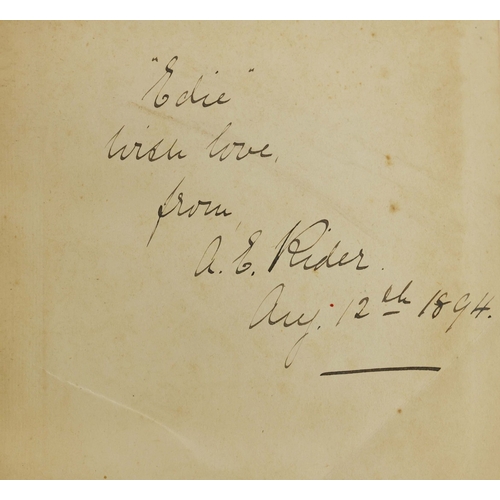 "Edie"
with love,
from,
A. E. Rider.
Aug. 12th 1894.